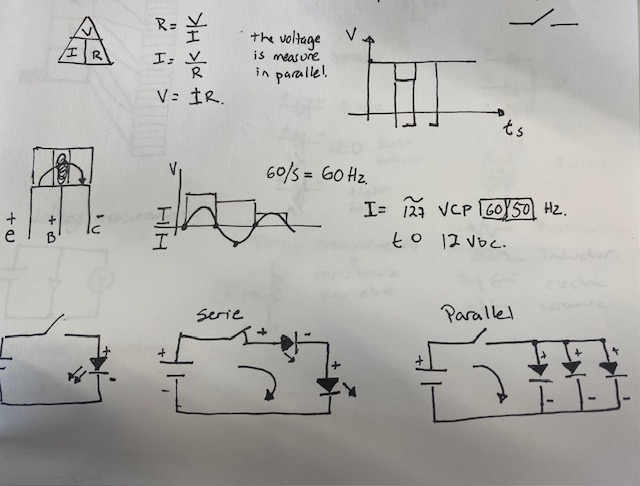 V
I R
R = V/I
I = V/R
V = IR.
the voltage
is measure
in parallel.
V
ts
+ + -
e B C
V
I
I
60/s = 60 Hz.
I = 127 VCP 60/50 Hz.
to 12 VDC.
+
-
Serie
+
-
+ -
+
Parallel
+
-
+ + +
- - -